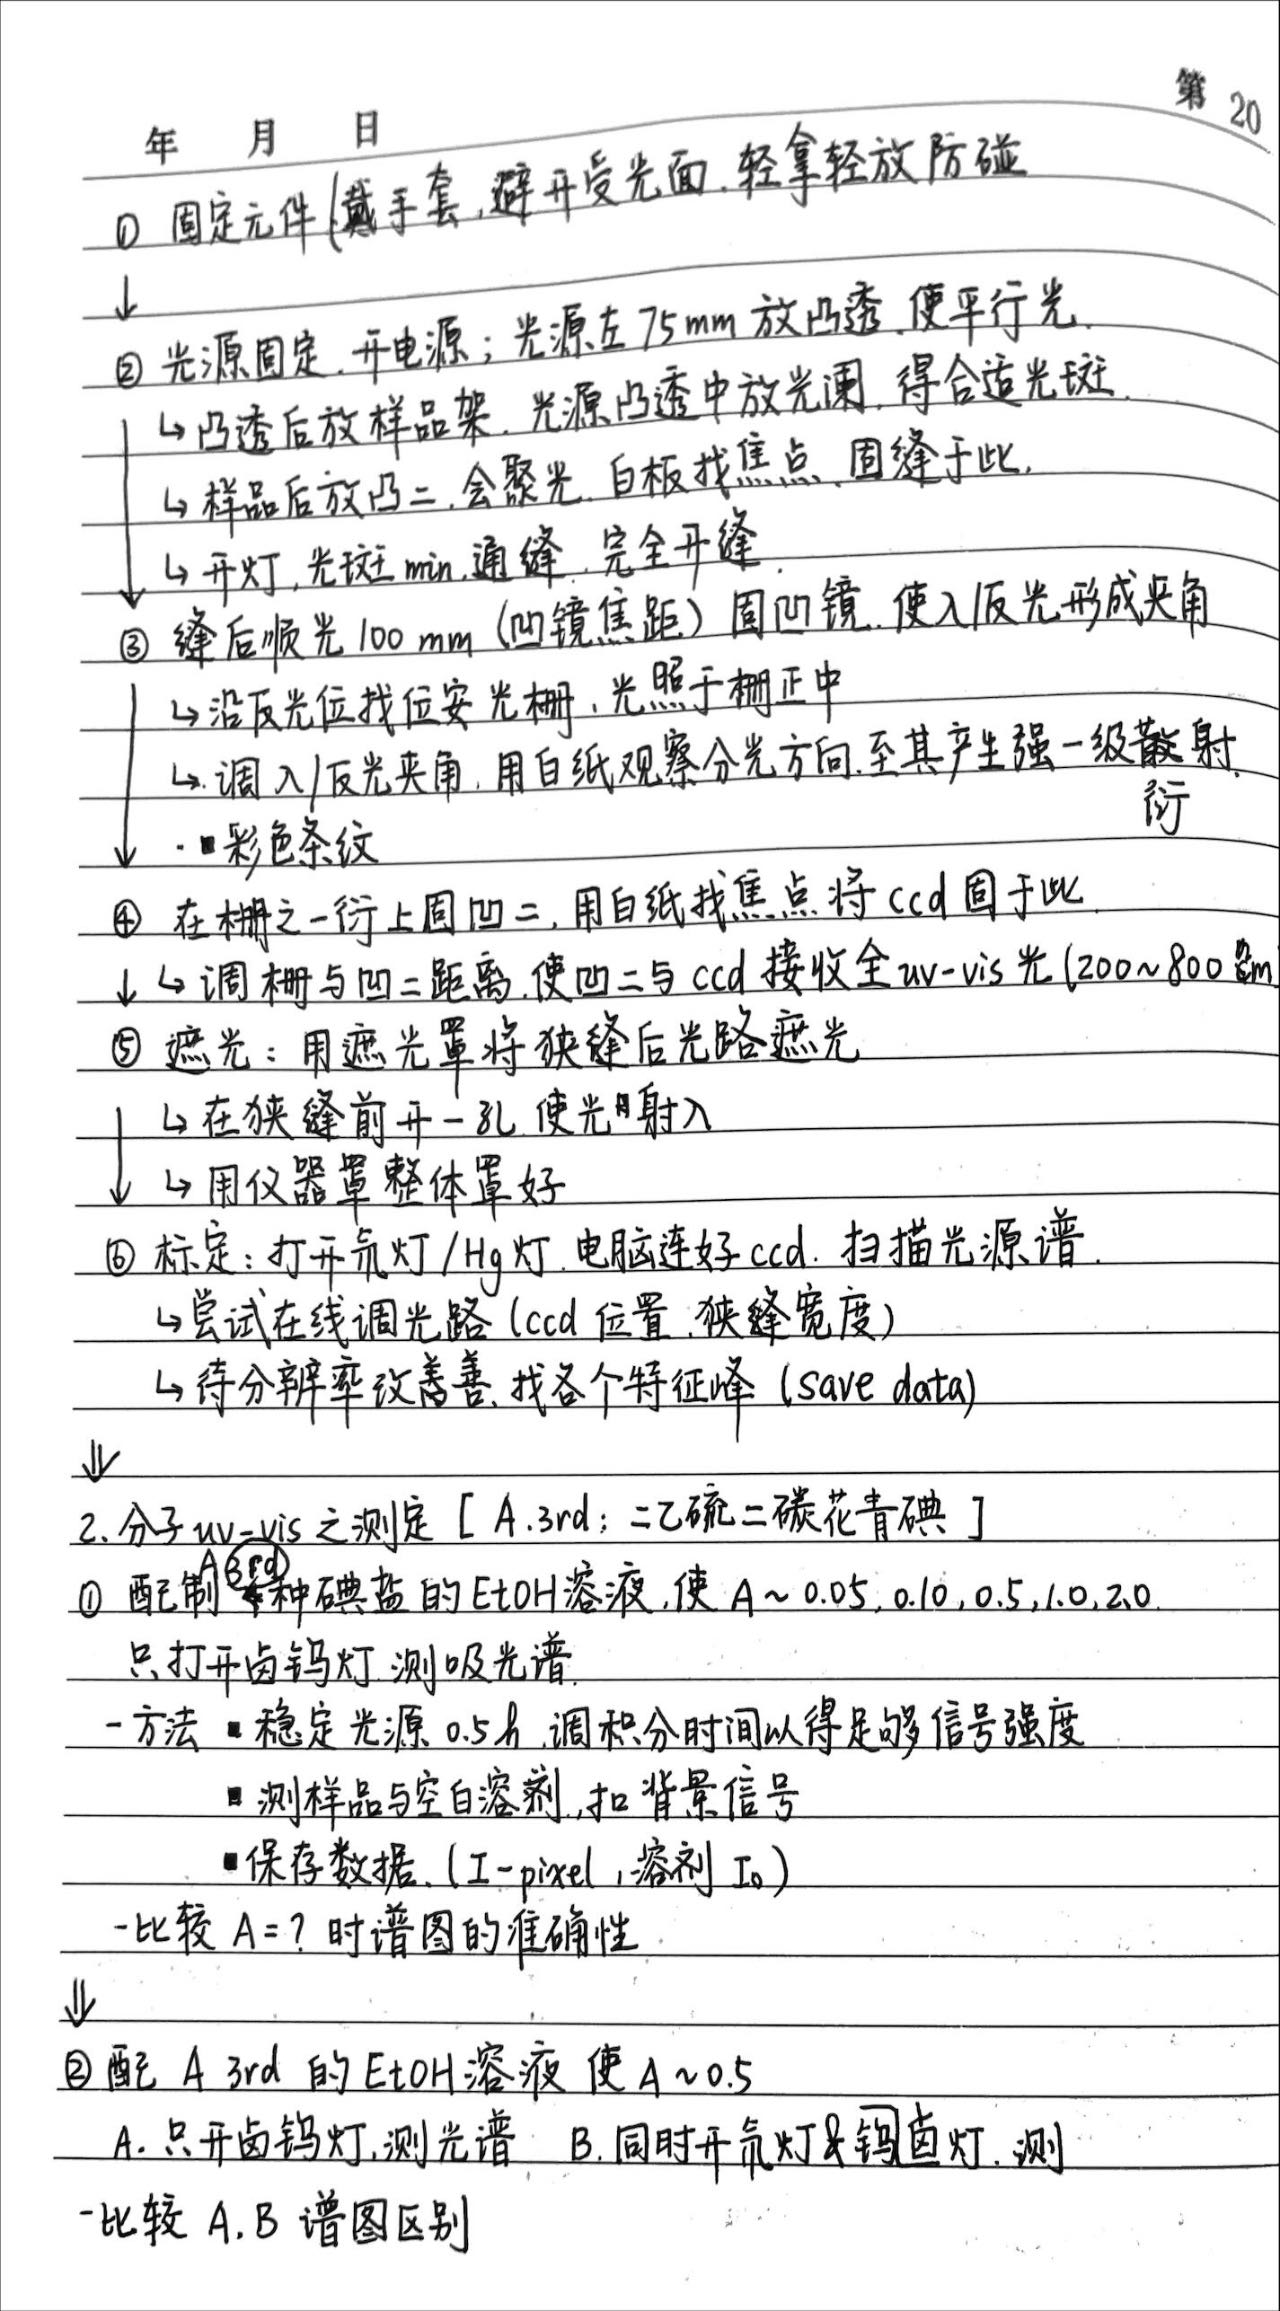 第 20
年 月 日
① 固定元件(戴手套,避开受光面.轻拿轻放防碰
↓
② 光源固定.开电源;光源左75mm放凸透.使平行光.
↳凸透后放样品架.光源凸透中放光阑.得合适光斑.
↳样品后放凸二.会聚光.白板找焦点.固缝于此.
↳开灯,光斑min.通缝.完全开缝.
③ 缝后顺光100mm(凹镜焦距)固凹镜.使入/反光形成夹角
↳沿反光位找位安光栅.光照于栅正中
↳调入/反光夹角.用白纸观察分光方向.至其产生强一级散射.
衍
·▪彩色条纹
④ 在栅之一衍上固凹二,用白纸找焦点将ccd固于此.
↓ ↳调栅与凹二距离.使凹二与ccd接收全uv-vis光(200~800nm
⑤ 遮光:用遮光罩将狭缝后光路遮光
↳在狭缝前开一孔.使光射入
↳用仪器罩整体罩好
⑥ 标定:打开氘灯/Hg灯.电脑连好ccd.扫描光源谱.
↳尝试在线调光路(ccd位置.狭缝宽度)
↳待分辨率改善.找各个特征峰(save data)
⇓
2.分子uv-vis之测定[A.3rd:二乙硫二碳花青碘]
A 3rd
① 配制 种碘盐的EtOH溶液,使A~0.05,0.10,0.5,1.0,2.0.
只打开卤钨灯.测吸光谱.
-方法▪稳定光源0.5h.调积分时间以得足够信号强度
▪测样品与空白溶剂.,扣背景信号
▪保存数据.(I-pixel,溶剂I₀)
-比较A=?时谱图的准确性
⇓
② 配A 3rd的EtOH溶液使A~0.5
A.只开卤钨灯,测光谱 B.同时开氘灯&钨卤灯.测
-比较A.B谱图区别